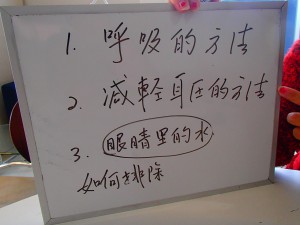 1. 呼吸的方法
2. 減輕耳压的方法
3. 眼睛里的水
如何去排除